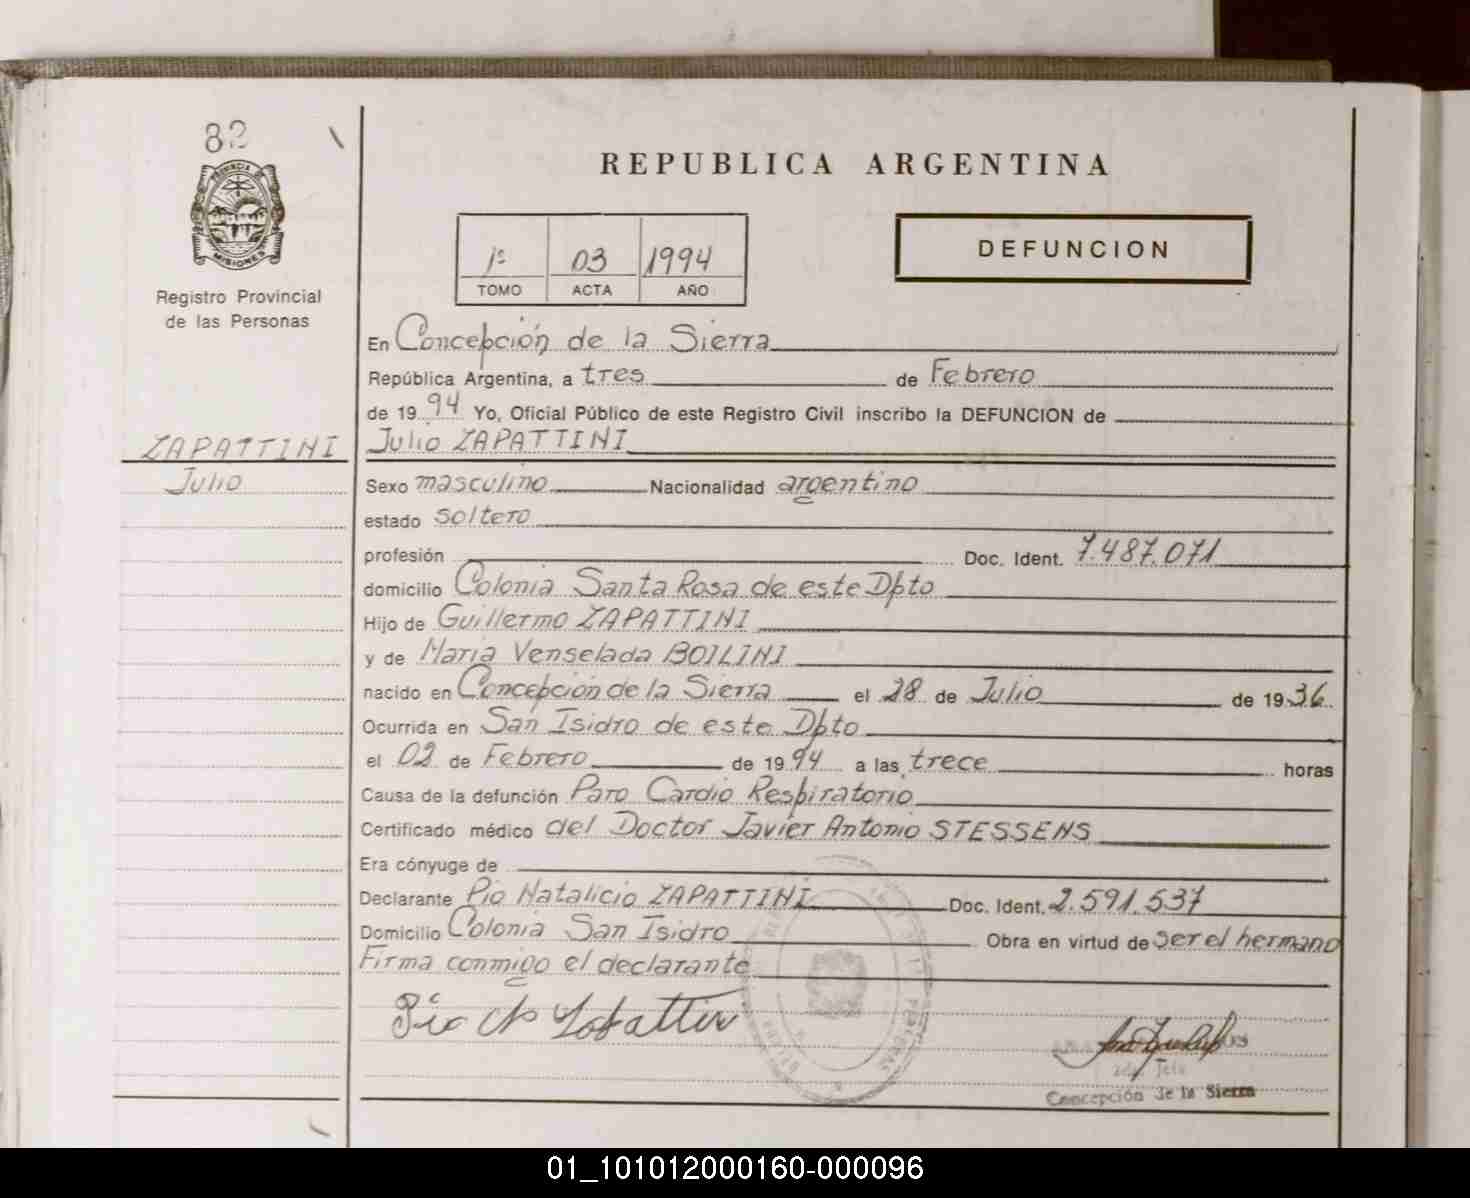 82
PROVINCIA DE
MISIONES
Registro Provincial
de las Personas
ZAPATTINI
Julio
REPUBLICA ARGENTINA
1º 03 1994
TOMO ACTA AÑO
DEFUNCION
En Concepción de la Sierra
República Argentina, a tres de Febrero
de 1994 Yo, Oficial Público de este Registro Civil inscribo la DEFUNCION de
Julio ZAPATTINI
Sexo masculino Nacionalidad argentino
estado soltero
profesión Doc. Ident. 7.487.071
domicilio Colonia Santa Rosa de este Dpto
Hijo de Guillermo ZAPATTINI
y de Maria Venselada BOILINI
nacido en Concepción de la Sierra el 28 de Julio de 1936
Ocurrida en San Isidro de este Dpto
el 02 de Febrero de 1994 a las trece horas
Causa de la defunción Paro Cardio Respiratorio
Certificado médico del Doctor Javier Antonio STESSENS
Era cónyuge de
Declarante Pio Natalicio ZAPATTINI Doc. Ident. 2.591.537
Domicilio Colonia San Isidro Obra en virtud de ser el hermano
Firma conmigo el declarante
Concepción de la Sierra
01_101012000160-000096